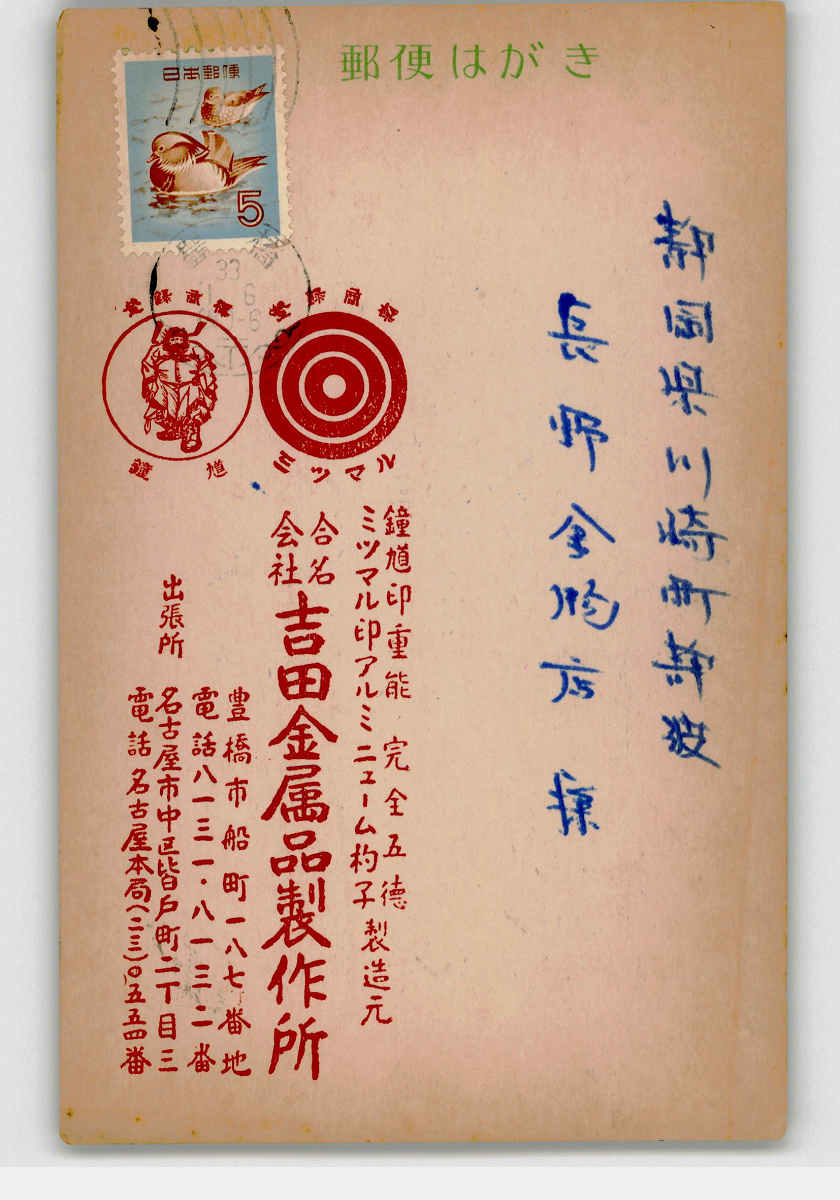 郵便はがき
日本郵便
5
33
6
静岡県川崎町静波
長野金物店様
登録商標
登録商標
鐘馗
ミツマル
鐘馗印重能 完全五徳
ミツマル印アルミニューム杓子製造元
合名会社
吉田金属品製作所
豊橋市船町一八七番地
電話八一三一・八一三二番
出張所
名古屋市中区皆戸町二丁目三
電話 名古屋本局(二三)〇五五四番